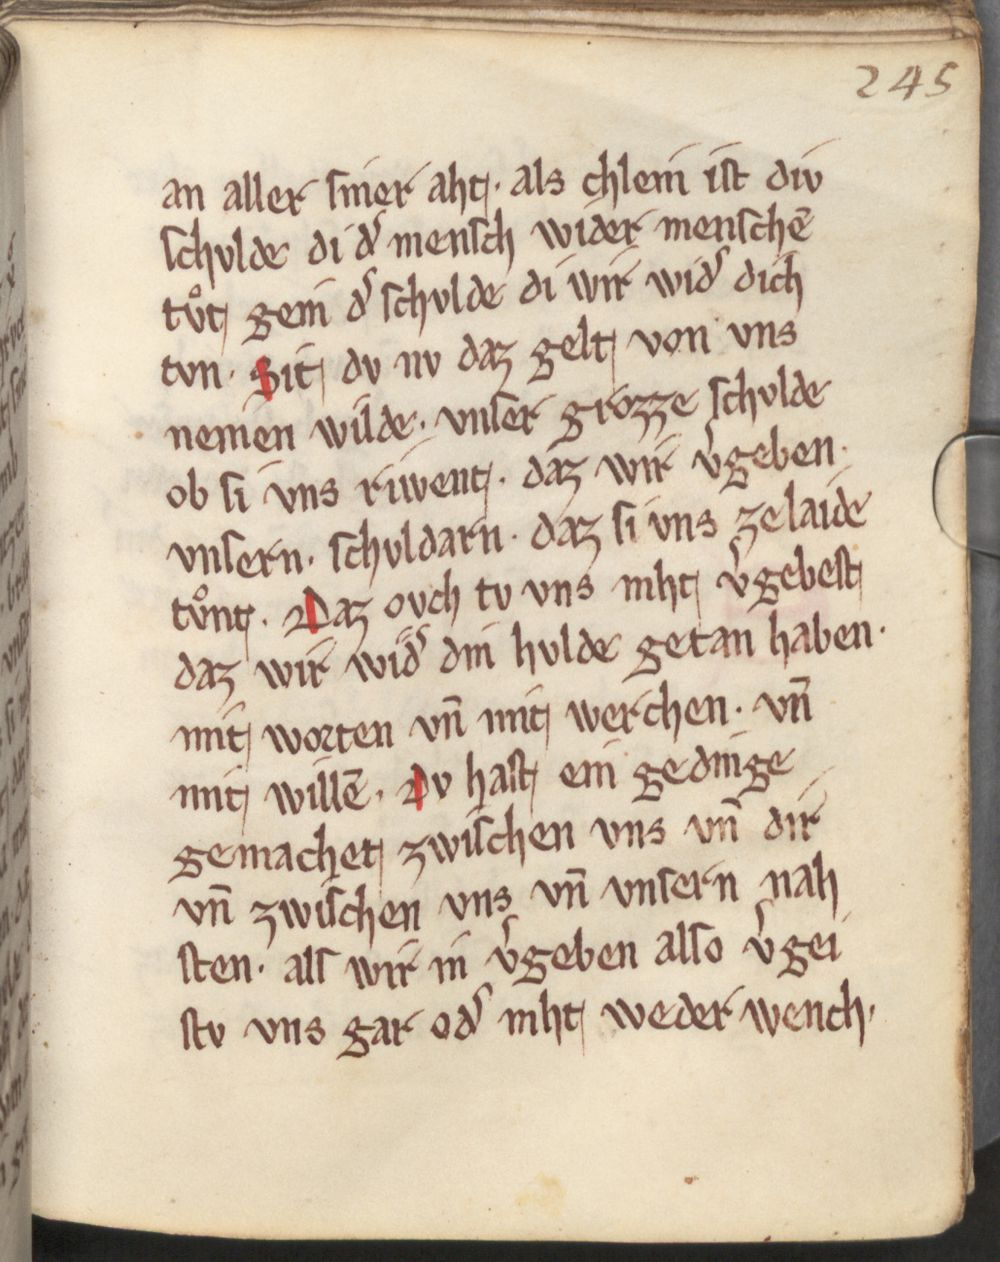 245
an aller ſiner aht. als chlein iſt div
ſchvlde di dˢ menſch wider menſchē
tvͦt gein dˢ ſchvlde di wir widˢ dich
tvn. Sit dv nv daz gelt von vns
nemen wilde. vnſer grozze ſchvlde
ob ſi vns riwent. daz wir v̓geben.
vnſern. ſchvldarn. daz ſi vns zelaide
tvͦnt. Daz ovch tv vns niht v̓gebeſt
daz wir widˢ din hvlde getan haben.
mit worten vn̄ mit werchen. vn̄
mit willē. Dv haſt ein gedinge
gemachet zwiſchen vns vn̄ dir
vn̄ zwiſchen vns vn̄ vnſern nah
ſten. alſ wir in v̓geben alſo v̓gei
ſtv vns gar odˢ niht weder wench.